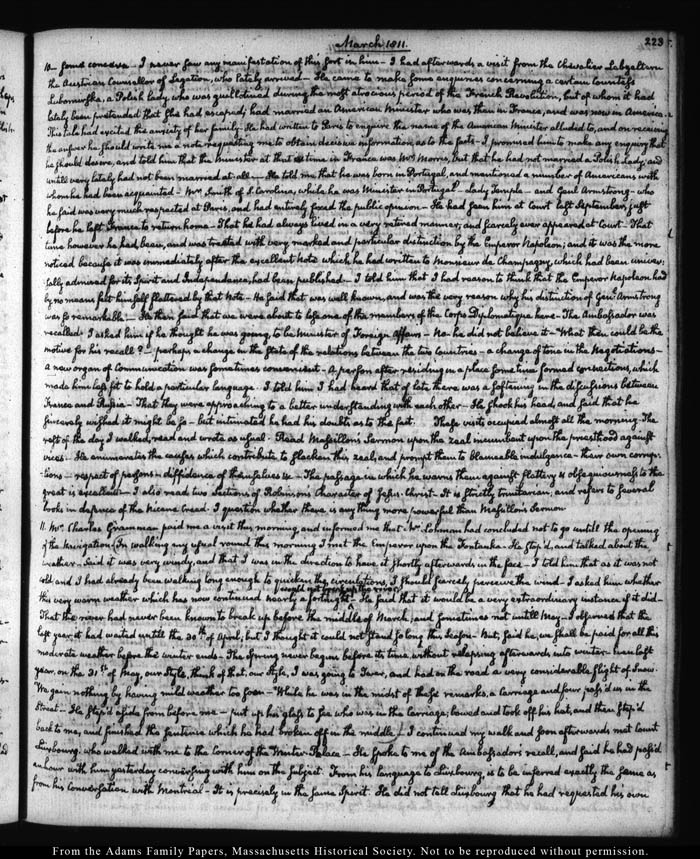 March 1811.
223
some concern. I never saw any manifestation of this sort in him — I had afterwards a visit from the Chevalier Labzeltern
the Austrian Counsellor of Legation, who lately arrived — He came to make some enquiries concerning a certain Countess
Lubomirska, a Polish lady, who was guillotined during the most atrocious period of the French Revolution, but of whom it had
lately been pretended that she had escaped, had married an American Minister who was then in France, and was now in America.
This tale had excited the anxiety of her family. He had written to Paris to enquire the name of the American Minister alluded to, and on receiving
the answer he should write me a note requesting me to obtain decisive information as to the facts — I promised him to make any enquiry that
he should desire, and told him that the Minister at that time in France was Mr. Morris, but that he had not married a Polish Lady, and
until very lately had not been married at all. — He told me that he was born in Portugal, and mentioned a number of Americans with
whom he had been acquainted — Mr. Smith of S. Carolina, while he was Minister in Portugal — Lady Temple — and Genl. Armstrong — who
he said was very much respected at Paris, and had entirely forced the public opinion — He had seen him at Court last September, just
before he left France to return home — That he had always lived in a very retired manner, and scarcely ever appeared at Court. That
time however he had been, and was treated with very marked and particular distinction by the Emperor Napoleon; and it was the more
noticed because it was immediately after the excellent Note which he had written to Monsieur de Champagny, which had been univer-
sally admired for its Spirit and Independence, had been published — I told him that I had reason to think that the Emperor Napoleon had
by no means felt himself flattered by that Note — He said that was well known, and was the very reason why his distinction of Genl. Armstrong
was so remarkable. — He then said that we were about to lose one of the members of the Corps Diplomatique here — The Ambassador was
recalled. I asked him if he thought he was going to be Minister of Foreign Affairs — No — he did not believe it — What then could be the
motive for his recall? — perhaps a change in the State of the relations between the two Countries — a change of tone in the Negotiations —
A new organ of Communication was sometimes convenient — A person after residing in a place some time formed connections, which
made him less fit to hold a particular language — I told him I had heard that of late there was a softening in the discussions between
France and Russia — That they were approaching to a better understanding with each other — He shook his head, and said that he
sincerely wished it might be so — but intimated he had his doubts as to the fact. These visits occupied almost all the morning. The
rest of the day I walked, read and wrote as usual — Read Massillon's Sermon upon the zeal incumbent upon the priesthood against
vices — He enumerates the causes which contribute to slacken this zeal, and prompt them to blameable indulgence — their own corrup-
tions — respect of persons — diffidence of themselves &c — The passage in which he warns them against flattery & obsequiousness to the
great is excellent — I also read two Sections of Robinson's Character of Jesus-Christ — It is strictly trinitarian, and refers to several
books in defence of the Nicene Creed. I question whether there is any thing more powerful than Massillon's Sermon
11. Mr. Charles Gramman paid me a visit this morning, and informed me that Mr. Lohman had concluded not to go until the opening
of the Navigation. In walking my usual round this morning I met the Emperor upon the Fontanka. He stop'd, and talked about the
weather. Said it was very windy, and that I was in the direction to have it shortly afterwards in the face — I told him that as it was not
cold and I had already been walking long enough to quicken the circulations, I should scarcely perceive the wind. I asked him whether
would not break up the river
this very warm weather which has now continued nearly a fortnight — He said that it would be a very extraordinary instance if it did —
That the river had never been known to break up before the middle of March; and sometimes not untill May — I observed that the
last year it had waited untill the 30th. of April; but I thought it could not stand so long this season — But, said he, we shall be paid for all this
moderate weather before the winter ends — The Spring never begins before its time without relapsing afterwards into winter — even last
year, on the 31st. of May, our Style, think of that, our Style, I was going to Twer, and had on the road a very considerable flight of Snow.
We gain nothing by having mild weather too soon — While he was in the midst of these remarks, a Carriage and four pass'd us in the
Street — He step'd aside from before me — put up his glass to see who was in the Carriage, bowed and took off his hat, and then step'd
back to me, and finished the sentence which he had broken off in the middle — I continued my walk and soon afterwards met Count
Luxbourg, who walked with me to the corner of the Winter-Palace — He spoke to me of the Ambassador's recall, and said he had pass'd
an hour with him yesterday conversing with him on the subject. From his language to Luxbourg, is to be inferred exactly the same as
from his conversation with Montréal — It is precisely in the same Spirit. He did not tell Luxbourg that he had requested his own
From the Adams Family Papers, Massachusetts Historical Society. Not to be reproduced without permission.